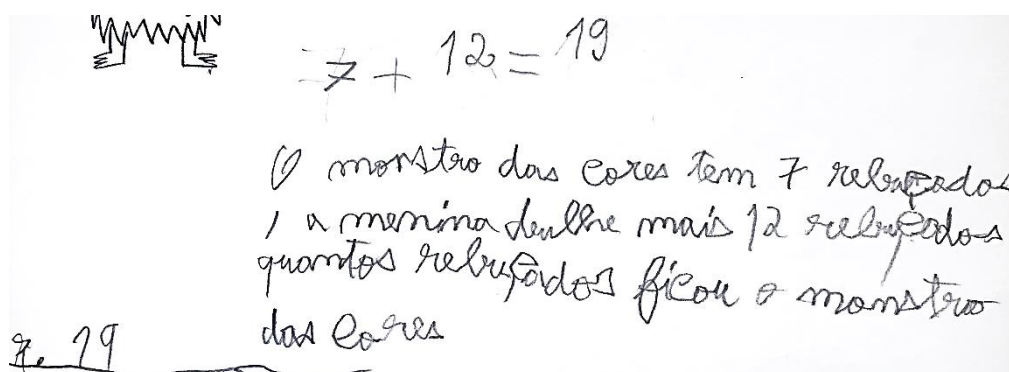 7 + 12 = 19
O monstro das cores tem 7 rebuçados
, a menina deulhe mais 12 rebuçados
quantos rebuçados ficou o monstro
das cores
r. 19